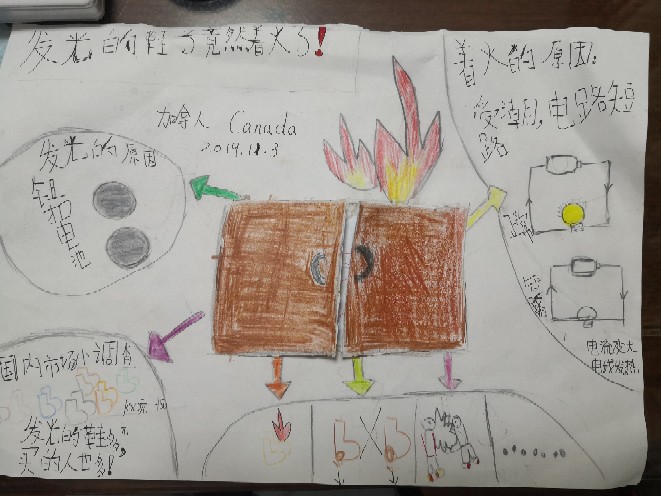 发光的鞋子竟然着火了!
加拿大 Canada
2019.11.3
发光的原因
钮扣电池
着火的原因:
浸泡,电路短
路
电流变大
电线发热.
国内市场小调查
发光的鞋多,
买的人也多!